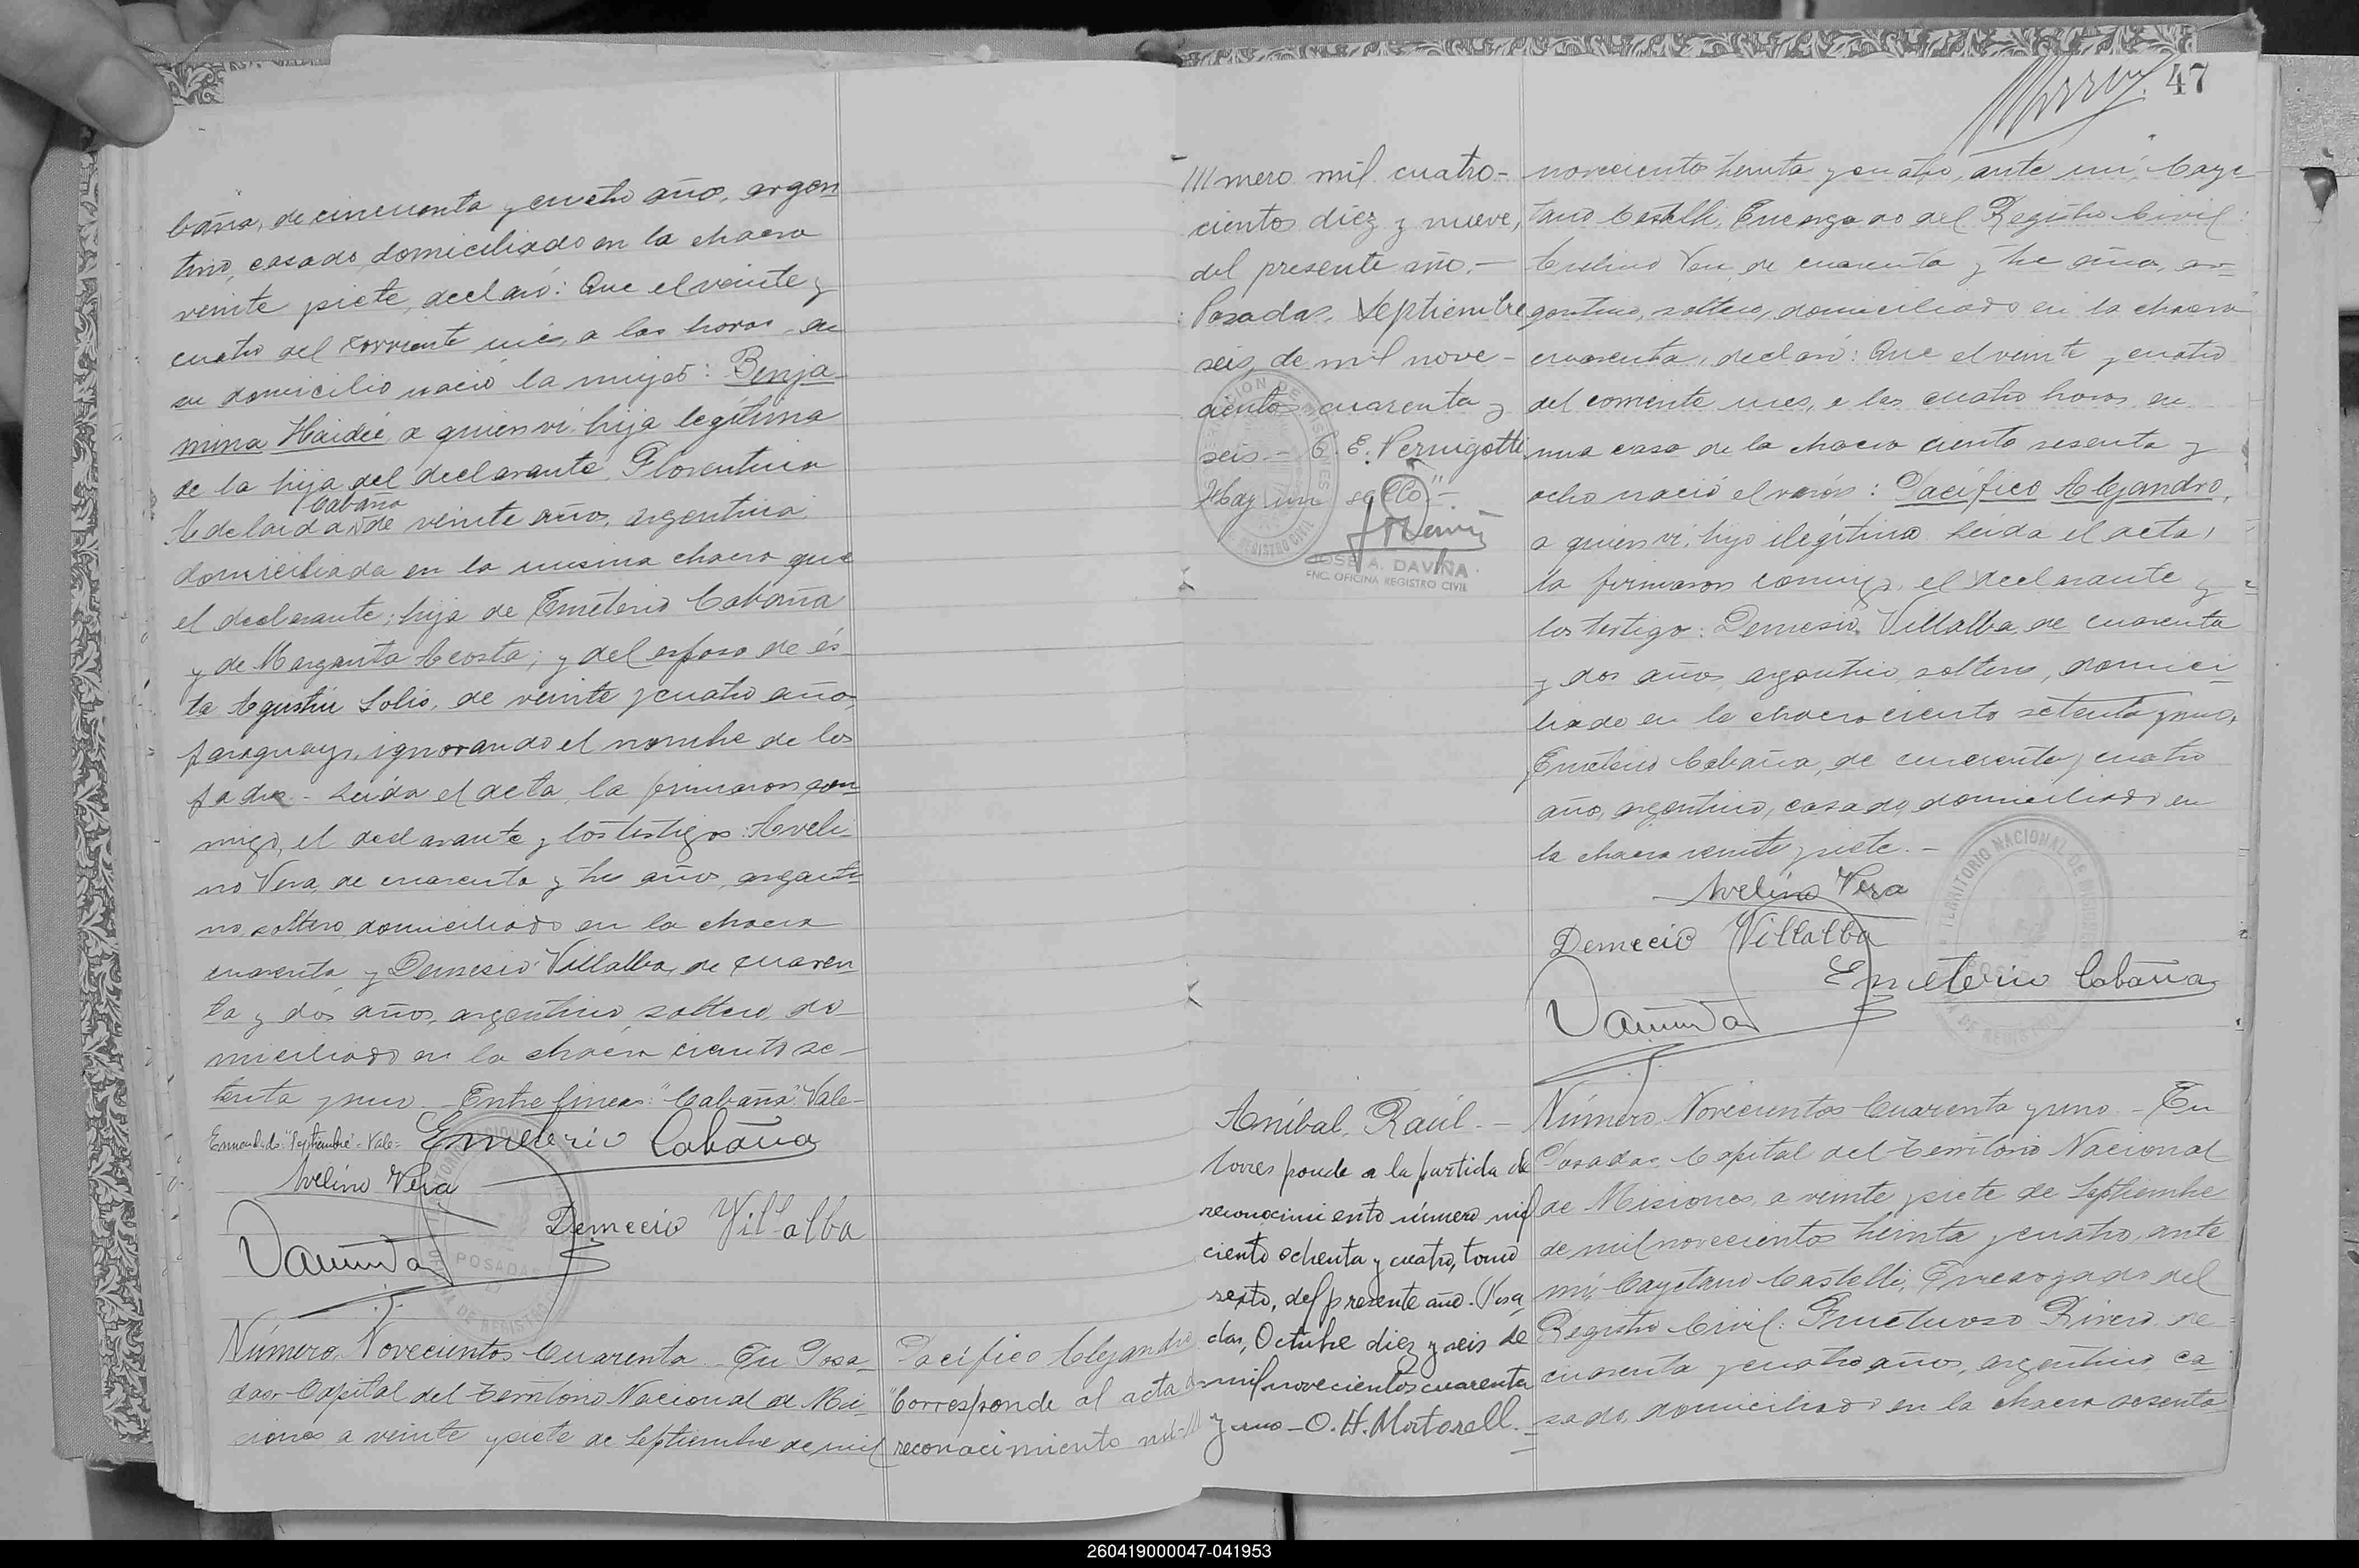 baña, de cincuenta y cuatro años, argen
tino, casado, domiciliado en la chacra
veinte y siete, declaró: Que el veinte y
cuatro del corriente mes, a las horas, en
su domicilio nació la mujer: Benja-
mina Haideé a quien vi, hija legítima
de la hija del declarante Florentina
Cabaña
Adelaida de veinte años, argentina,
domiciliada en la misma chacra que
el declarante; hija de Emeterio Cabaña
y de Margarita Acosta; y del esposo de és-
ta Agustín Solis, de veinte y cuatro años,
paraguayo, ignorando el nombre de los
padres - Leída el acta, la firmaron con
migo, el declarante y los testigos: Aveli-
no Vera, de cuarenta y tres años, argenti-
no, soltero, domiciliado en la chacra
cuarenta, y Demesio Villalba, de cuaren
ta y dos años, argentino, soltero, do-
miciliado en la chacra ciento se-
tenta y uno. - Entre líneas: "Cabaña". Vale-
Enmendado: "Septiembre" - Vale-
Emeterio Cabaña
Avelino Vera
Demecio Villalba
POSADAS
Número Novecientos Cuarenta - En Posa-
das, Capital del Territorio Nacional de Mi-
siones a veinte y siete de Septiembre de mil
Pacífico Alejandro
"Corresponde al acta de
reconocimiento nú-///
47
///mero mil cuatro-
cientos diez y nueve,
del presente año. -
Posadas, Septiembre
seis de mil nove-
cientos cuarenta y
seis. - E. Pernigotti
Hay un sello" -
JOSE A. DAVIÑA
ENC. OFICINA REGISTRO CIVIL
novecientos treinta y cuatro, ante mí, Caye-
tano Castelli, Encargado del Registro Civil:
Avelino Vera, de cuarenta y tres años, ar-
gentino, soltero, domiciliado en la chacra
cuarenta, declaró: Que el veinte y cuatro
del corriente mes, a las cuatro horas, en
una casa de la chacra ciento sesenta y
ocho nació el varón: Pacífico Alejandro,
a quien vi, hijo ilegítimo. Leída el acta,
la firmaron conmigo, el declarante y
los testigos: Demesio Villalba, de cuarenta
y dos años, argentino, soltero, domici-
liado en la chacra ciento setenta y uno,
Emeterio Cabaña, de cincuenta y cuatro
años, argentino, casado, domiciliado en
la chacra veinte y siete. -
Avelino Vera
Demecio Villalba
Emeterio Cabaña
TERRITORIO NACIONAL DE MISIONES
Aníbal Raúl. -
Corresponde a la partida de
reconocimiento número mil
ciento ochenta y cuatro, tomo
sexto, del presente año. Posa
das, Octubre diez y seis de
mil novecientos cuarenta
y uno - O. H. Mortorell. -
Número Novecientos Cuarenta y uno - En
Posadas, Capital del Territorio Nacional
de Misiones, a veinte y siete de Septiembre
de mil novecientos treinta y cuatro, ante
mí, Cayetano Castelli, Encargado del
Registro Civil: Fructuoso Rivero, de
cuarenta y cuatro años, argentino, ca
sado, domiciliado en la chacra sesenta
260419000047-041953